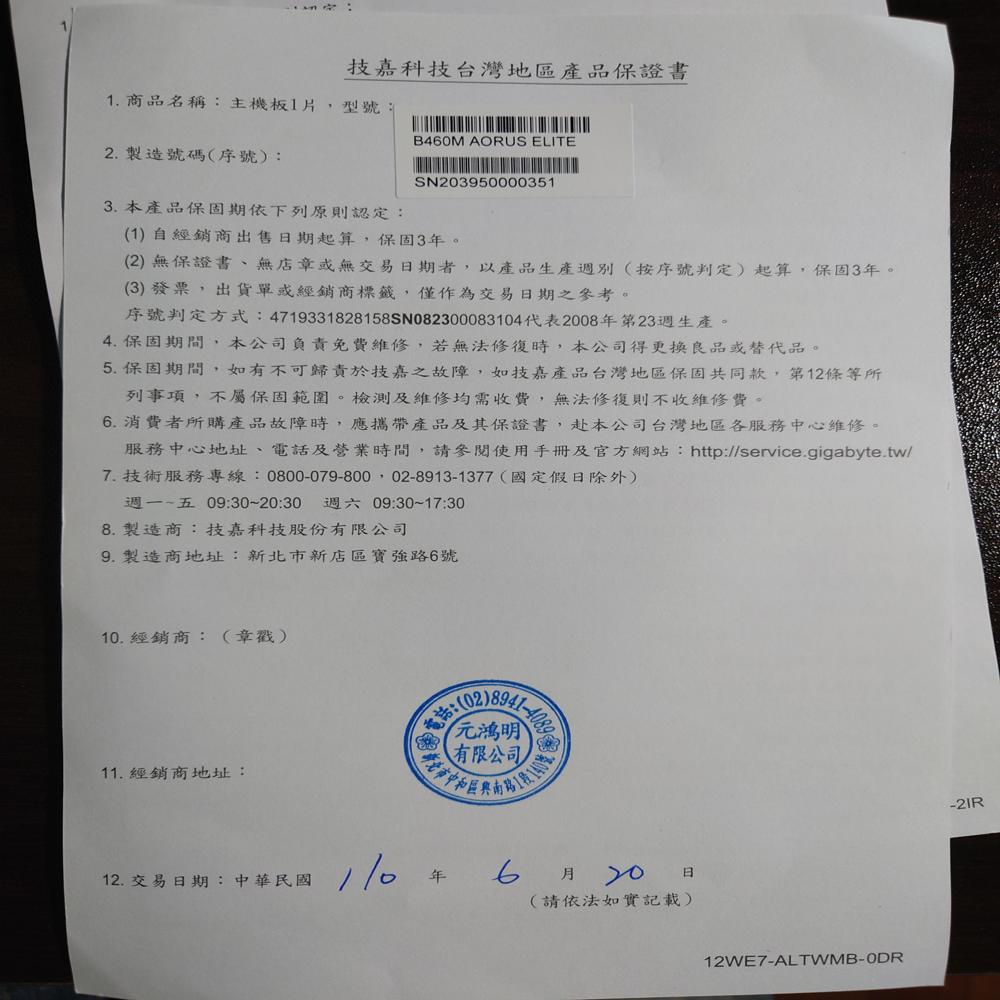 技嘉科技台灣地區產品保證書
1. 商品名稱：主機板1片，型號：
B460M AORUS ELITE
2. 製造號碼(序號)：
SN203950000351
3. 本產品保固期依下列原則認定：
(1) 自經銷商出售日期起算，保固3年。
(2) 無保證書、無店章或無交易日期者，以產品生產週別（按序號判定）起算，保固3年。
(3) 發票，出貨單或經銷商標籤，僅作為交易日期之參考。
序號判定方式：4719331828158SN082300083104代表2008年第23週生產。
4. 保固期間，本公司負責免費維修，若無法修復時，本公司得更換良品或替代品。
5. 保固期間，如有不可歸責於技嘉之故障，如技嘉產品台灣地區保固共同款，第12條等所
列事項，不屬保固範圍。檢測及維修均需收費，無法修復則不收維修費。
6. 消費者所購產品故障時，應攜帶產品及其保證書，赴本公司台灣地區各服務中心維修。
服務中心地址、電話及營業時間，請參閱使用手冊及官方網站：http://service.gigabyte.tw/
7. 技術服務專線：0800-079-800，02-8913-1377（國定假日除外）
週一~五 09:30~20:30 週六 09:30~17:30
8. 製造商：技嘉科技股份有限公司
9. 製造商地址：新北市新店區寶強路6號
10. 經銷商：（章戳）
電話:(02)8941-4089
元鴻明
有限公司
新北市中和區興南路1段140號
11. 經銷商地址：
12. 交易日期：中華民國 110 年 6 月 20 日
（請依法如實記載）
12WE7-ALTWMB-0DR
-2IR